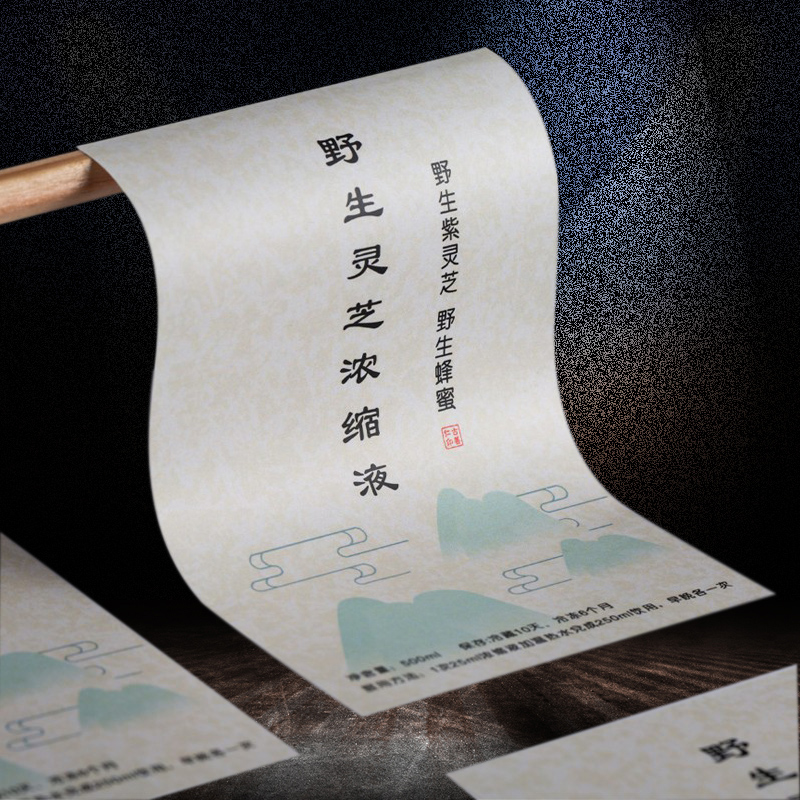 野生灵芝浓缩液
野生紫灵芝 野生蜂蜜
净含量：500ml 保存:冷藏10天、冷冻6个月
食用方法：1次25ml浓缩液加温热水兑成250ml饮用，早晚各一次
野生